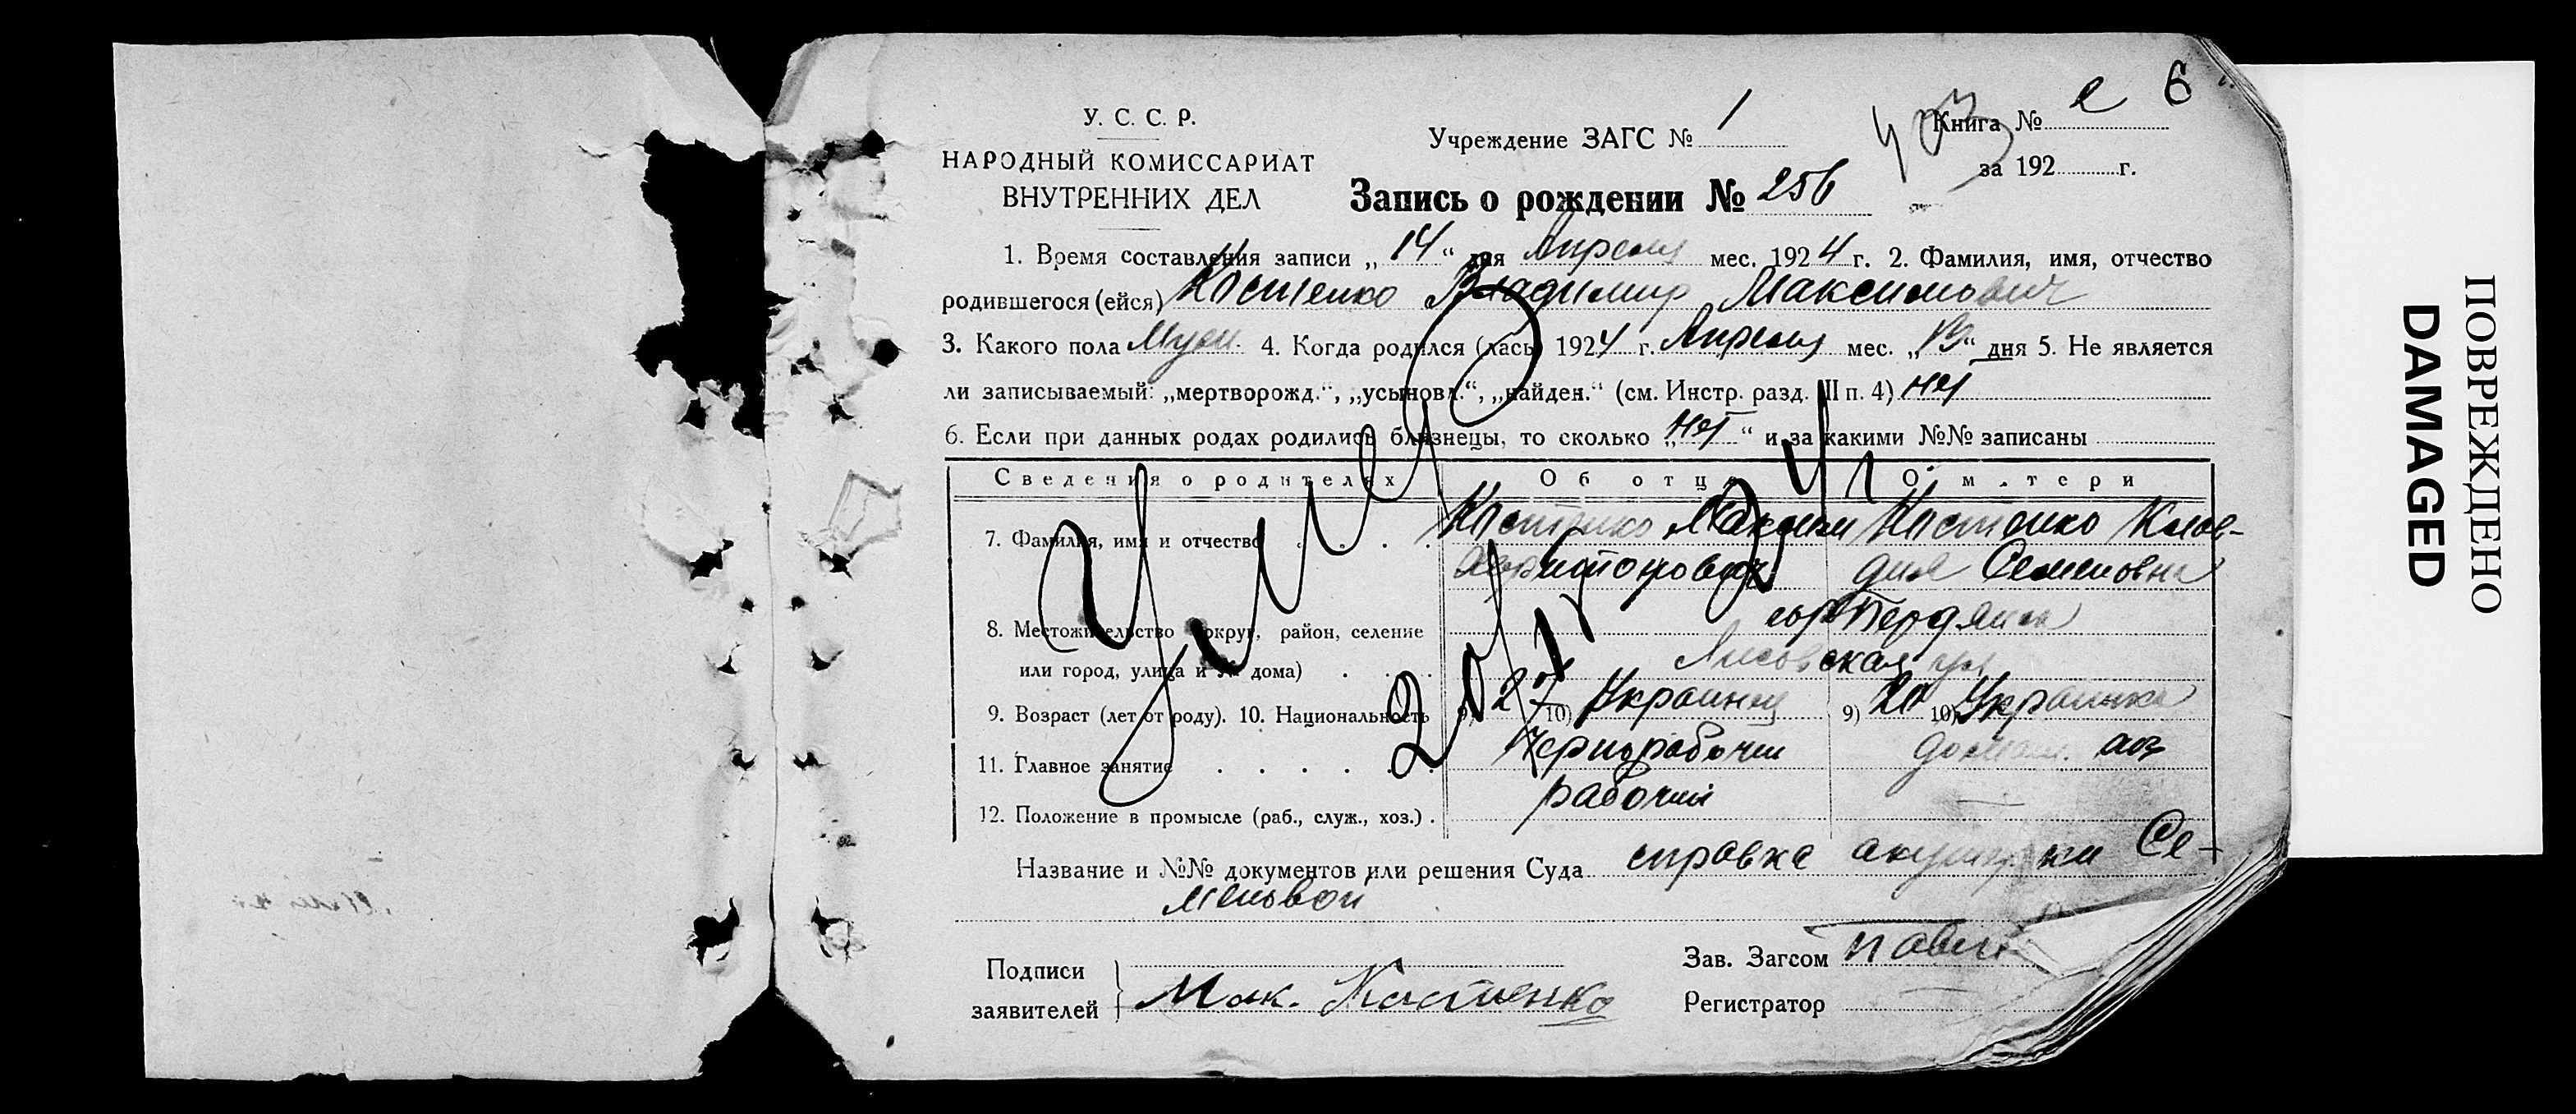 6
У. С. С. Р.
НАРОДНЫЙ КОМИССАРИАТ
ВНУТРЕННИХ ДЕЛ
Учреждение ЗАГС № 1
Книга №
за 192 г.
Запись о рождении № 256
1. Время составления записи „ 14 “ дня Апреля мес. 1924 г. 2. Фамилия, имя, отчество
родившегося (ейся) Костенко Владимир Максимович
3. Какого пола Муж. 4. Когда родился (лась) 1924 г. Апреля мес. „ “ дня 5. Не является
ли записываемый: „мертворожд.“, „усыновл.“, „найден.“ (см. Инстр. разд. III п. 4) нет
6. Если при данных родах родились близнецы, то сколько „ нет “ и за какими №№ записаны
Сведения о родителях Об отце О матери
7. Фамилия, имя и отчество Костенко Максим Костенко Клав-
дия Семеновна
8. Местожительство (округ, район, селение гор Бердянск
или город, улица и № дома) Лисовская ул
9. Возраст (лет от роду). 10. Национальность 9) 27 10) Украинец 9) 20 10) Украинка
11. Главное занятие Чернорабочий домаш. хоз
12. Положение в промысле (раб., служ., хоз.) рабочий
Название и №№ документов или решения Суда справка акушерки Се-
меновой
Подписи
заявителей Мак. Костенко
Зав. Загсом
Регистратор
ПОВРЕЖДЕНО
DAMAGED